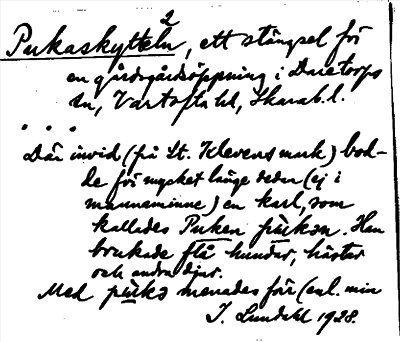 Pukaskytteln², ett stängsel för
en gärdsgårdsöppning i Daretorps
sn, Vartofta hd, Skarab.l.
. . .
Där invid (på St. Klevens mark) bod-
de för mycket länge sedan (ej i
mannaminne) en karl, som
kallades Puken pùkən. Han
brukade flå hundar, hästar
och andra djur.
Med pùkə menades förr (enl. min
J. Lundahl 1928.